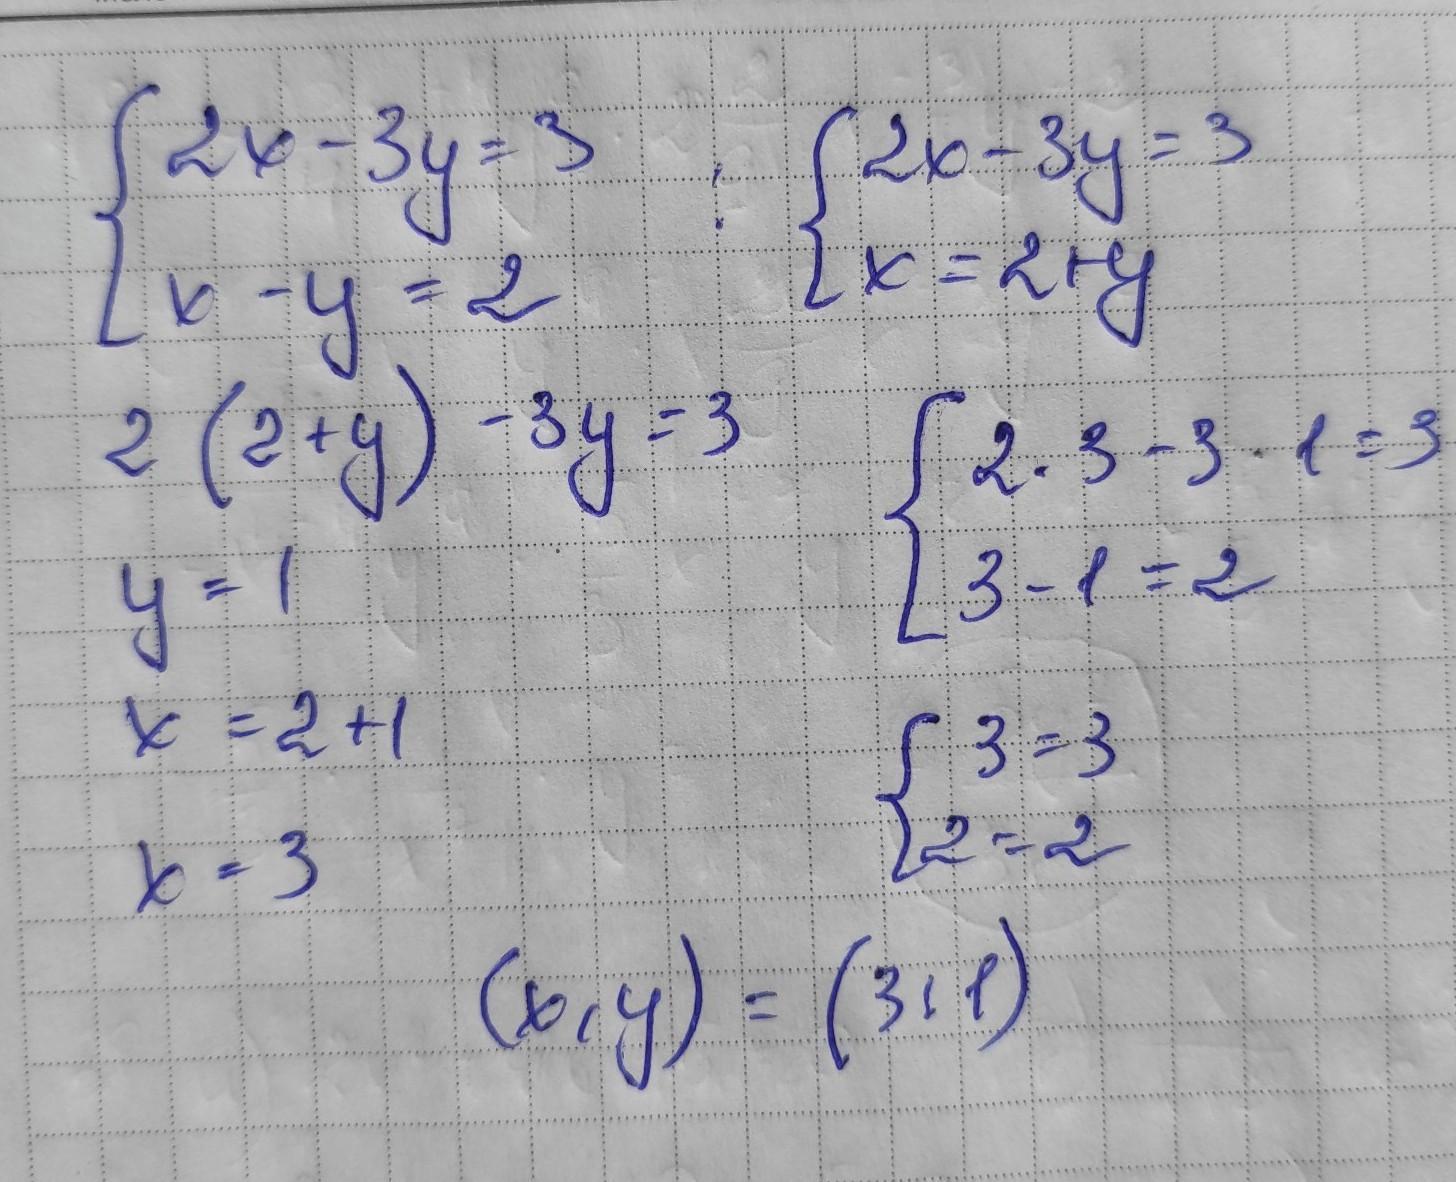 { 2x - 3y = 3 ; { 2x - 3y = 3
x - y = 2 x = 2 + y
2 (2 + y) - 3y = 3
y = 1
x = 2 + 1
x = 3
{ 2 · 3 - 3 · 1 = 3
3 - 1 = 2
{ 3 = 3
2 = 2
(x, y) = (3, 1)